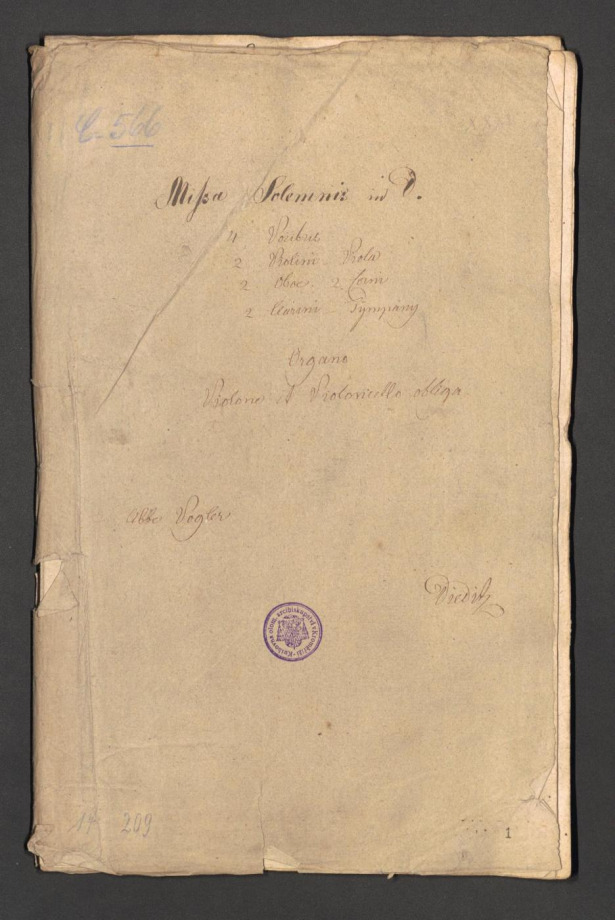 C. 566
Missa Solemnis in D.
4 Vocibus
2 Violini Viola
2 Oboe 2 Corni
2 Clarini Tympany
Organo
Violone et Violoncello obliga
Abbe Vogler
Knihovna olom. arcibiskupství v Kroměříži
209
1